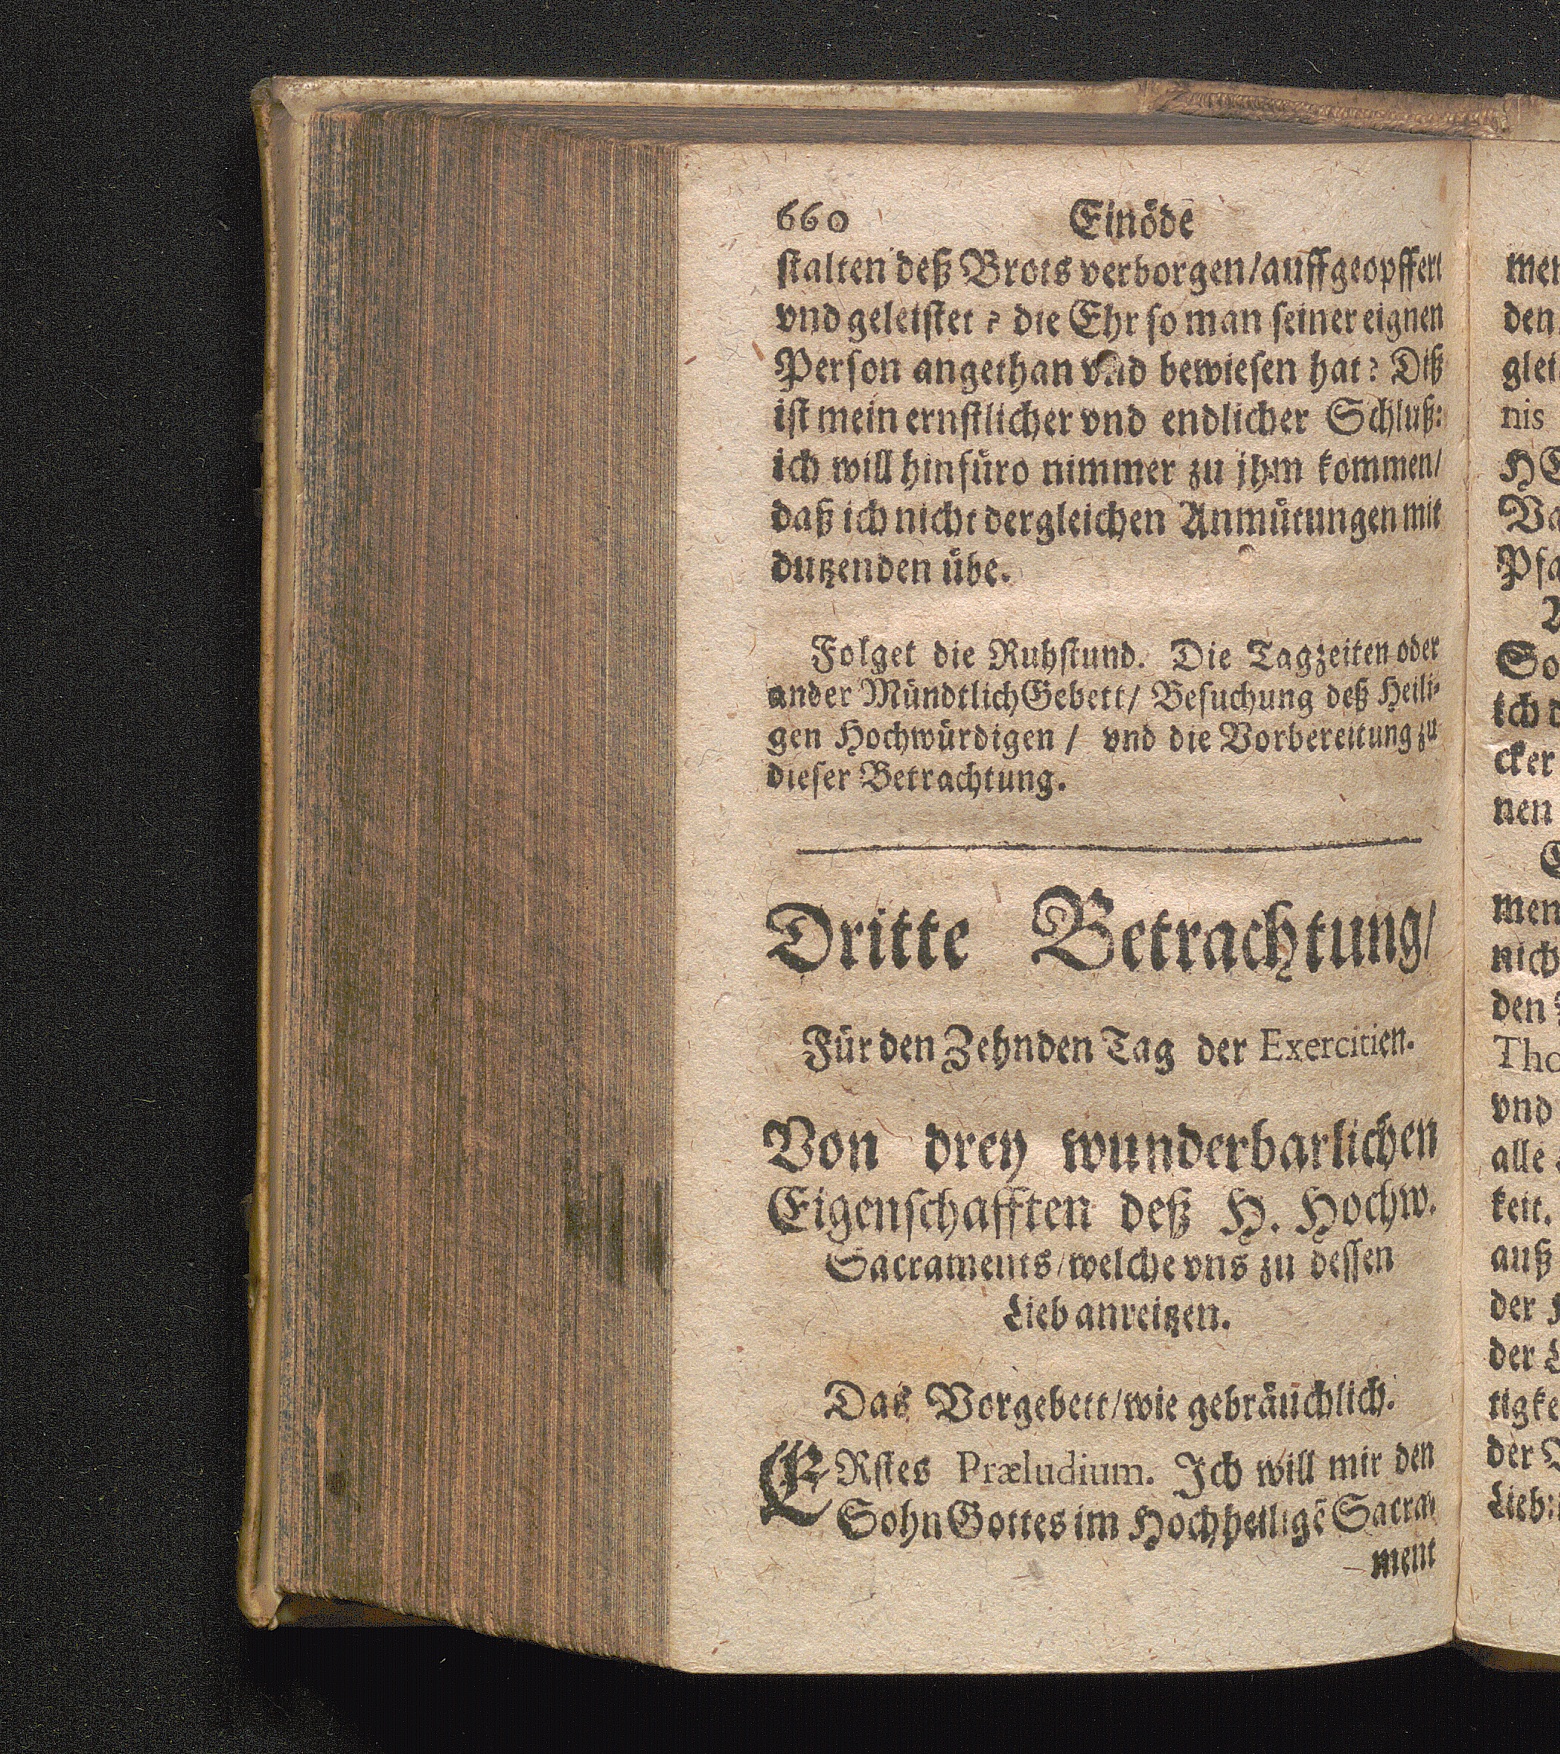 660 Einöde
stalten deß Brots verborgen/auffgeopffert
vnd geleistet? die Ehr so man seiner eignen
Person angethan vnd bewiesen hat? Diß
ist mein ernstlicher vnd endlicher Schluß:
ich will hinfüro nimmer zu jhm kommen/
daß ich nicht dergleichen Anmütungen mit
dutzenden übe.
Folget die Ruhstund. Die Tagzeiten oder
ander Mündtlich Gebett/ Besuchung deß Heili-
gen Hochwürdigen / vnd die Vorbereitung zu
dieser Betrachtung.
Dritte Betrachtung/
Für den Zehnden Tag der Exercitien.
Von drey wunderbarlichen
Eigenschafften deß H. Hochw.
Sacraments/welche vns zu dessen
Lieb anreitzen.
Das Vorgebett/wie gebräuchlich.
ERstes Præludium. Ich will mir den
Sohn Gottes im Hochheiligē Sacra-
ment
mer
den
glei
nis
HE
Va
Pfa
So
ich d
cker
nen
men
nich
den
Tho
vnd
alle
keit.
auß
der
der L
tigke
der
Lieb: